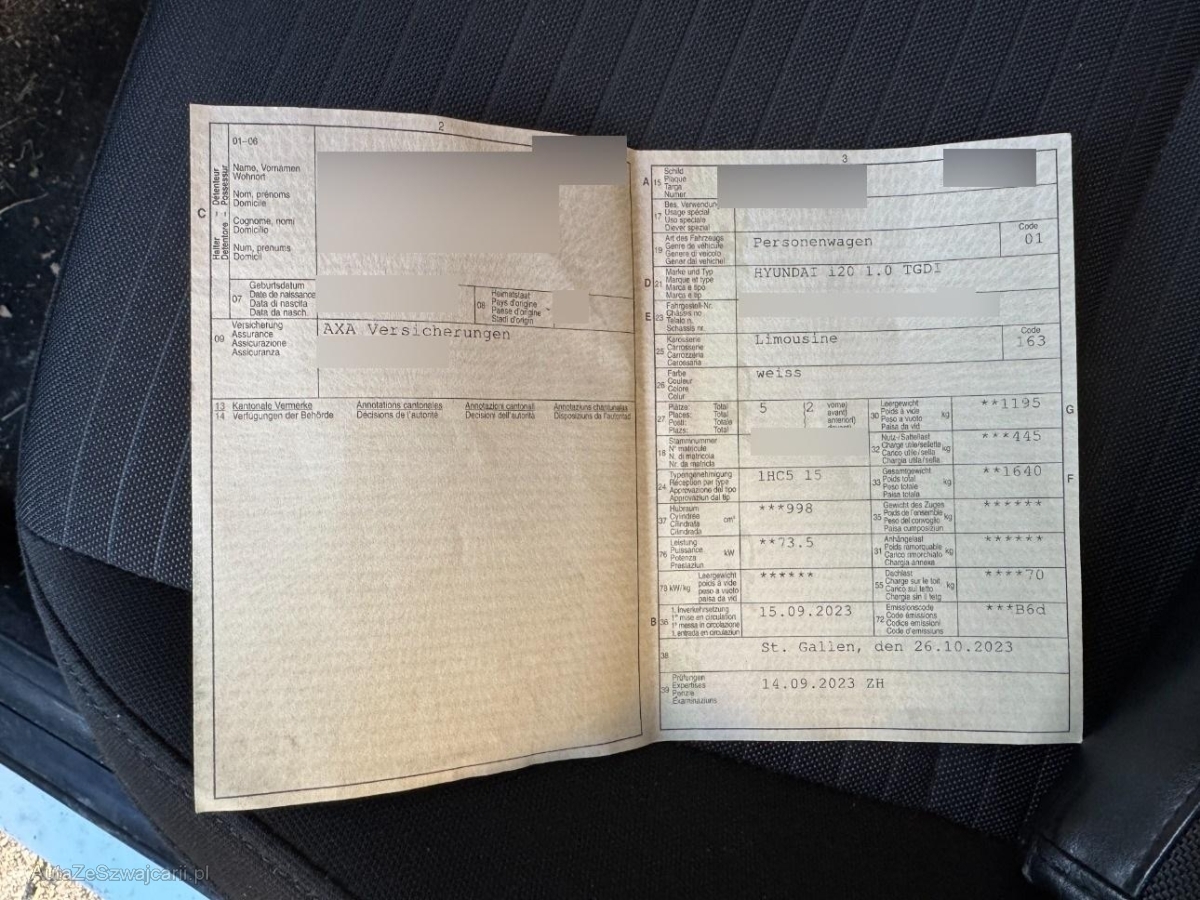 2
01-06
C
Halter
Détenteur
Detentore
Possessur
Name, Vornamen
Wohnort
Nom, prénoms
Domicile
Cognome, nomi
Domicilio
Num, prenums
Domicil
07
Geburtsdatum
Date de naissance
Data di nascita
Data da nasch.
08
Heimatstaat
Pays d'origine
Paese d'origine
Stadi d'origin
09
Versicherung
Assurance
Assicurazione
Assicuranza
AXA Versicherungen
13 Kantonale Vermerke Annotations cantonales Annotazioni cantonali Annotaziuns chantunalas
14 Verfügungen der Behörde Décisions de l'autorité Decisioni dell'autorità Disposiziuns da l'autoritad
3
A 15
Schild
Plaque
Targa
Numer
17
Bes. Verwendung
Usage spécial
Uso speciale
Diever spezial
19
Art des Fahrzeugs
Genre de véhicule
Genere di veicolo
Gener dal vehichel
Personenwagen
Code
01
D 21
Marke und Typ
Marque et type
Marca e tipo
Marca e tip
HYUNDAI i20 1.0 TGDI
E 23
Fahrgestell-Nr.
Châssis no
Telaio n.
Schassis nr.
25
Karosserie
Carrosserie
Carrozzeria
Carossaria
Limousine
Code
163
26
Farbe
Couleur
Colore
Colur
weiss
27
Plätze: Total
Places: Total
Posti: Totale
Plazs: Total
5 (2 vorne)
avant)
anteriori)
30
Leergewicht
Poids à vide
Peso a vuoto
Paisa da vid
kg
**1195
G
18
Stammnummer
N° matricule
N. di matricola
Nr. da matricla
32
Nutz-/Sattellast
Charge utile/sellette
Carico utile/sella
Chargia utila/sella
kg
***445
24
Typengenehmigung
Réception par type
Approvazione del tipo
Approvaziun dal tip
1HC5 15
33
Gesamtgewicht
Poids total
Peso totale
Paisa totala
kg
**1640
F
37
Hubraum
Cylindrée
Cilindrata
Cilindrada
cm³
***998
35
Gewicht des Zuges
Poids de l'ensemble
Peso del convoglio
Paisa cumposiziun
kg
******
76
Leistung
Puissance
Potenza
Prestaziun
kW
**73.5
31
Anhängelast
Poids remorquable
Carico rimorchiato
Chargia annexa
kg
******
78 kW/kg
Leergewicht
poids à vide
peso a vuoto
paisa da vid
******
55
Dachlast
Charge sur le toit
Carico sul tetto
Chargia sin il tetg
kg
****70
B 36
1. Inverkehrsetzung
1re mise en circulation
1a messa in circolazione
1. entrada en circulaziun
15.09.2023
72
Emissionscode
Code émissions
Codice emissioni
Code d'emissiuns
***B6d
38
St. Gallen, den 26.10.2023
39
Prüfungen
Expertises
Perizie
Examinaziuns
14.09.2023 ZH
AutaZeSzwajcarii.pl